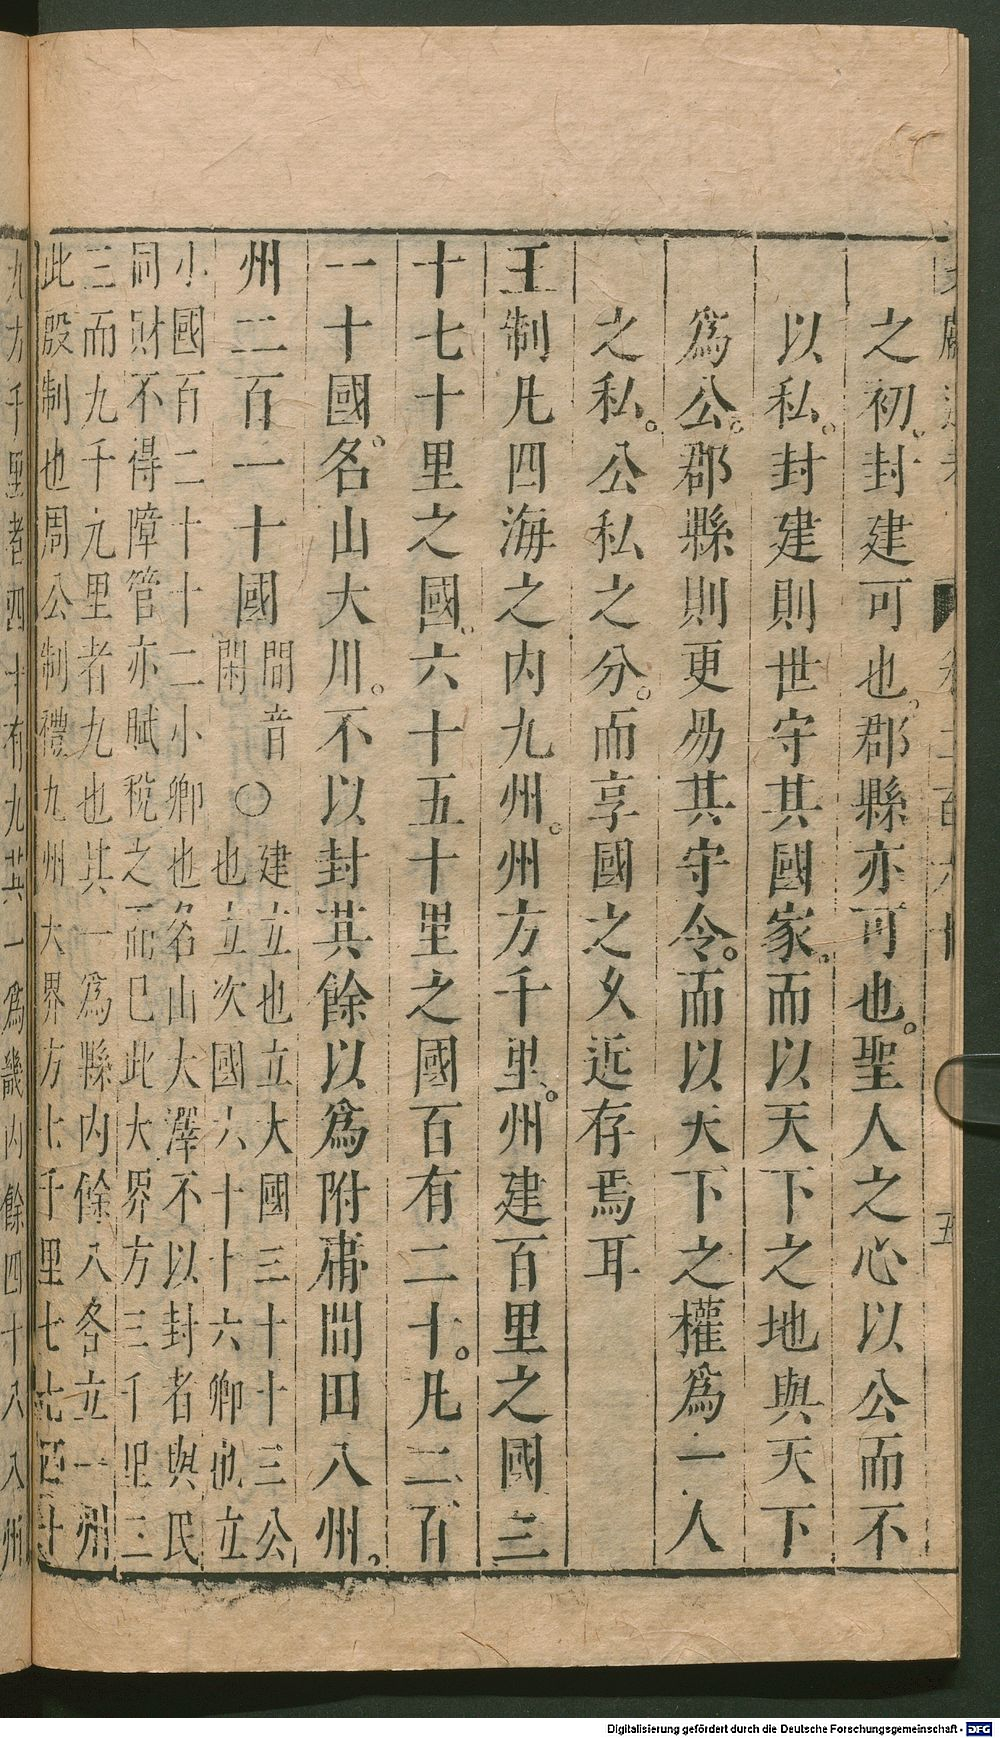 文獻通考 卷二百六十 五
之初。封建可也。郡縣亦可也。聖人之心以公而不
以私。封建則世守其國家。而以天下之地與天下
爲公。郡縣則更易其守令。而以天下之權爲一人
之私。公私之分。而享國之久近存焉耳
王制凡四海之内九州。州方千里。州建百里之國三
十七十里之國。六十五十里之國百有二十。凡二百
一十國。名山大川。不以封其餘以爲附庸閒田八州。
州二百一十國
閒音
閑
○
建立也立大國三十十三公
也立次國六十十六卿也立
小國百二十十二小卿也名山大澤不以封者與民
同財不得障管亦賦稅之而已此大界方三千里三
三而九千元里者九也其一爲縣内餘八各立一州
此殷制也周公制禮九州大界方七千里七七四十
九方千里者四十有九其一爲畿内餘四十八八州
Digitalisierung gefördert durch die Deutsche Forschungsgemeinschaft - DFG